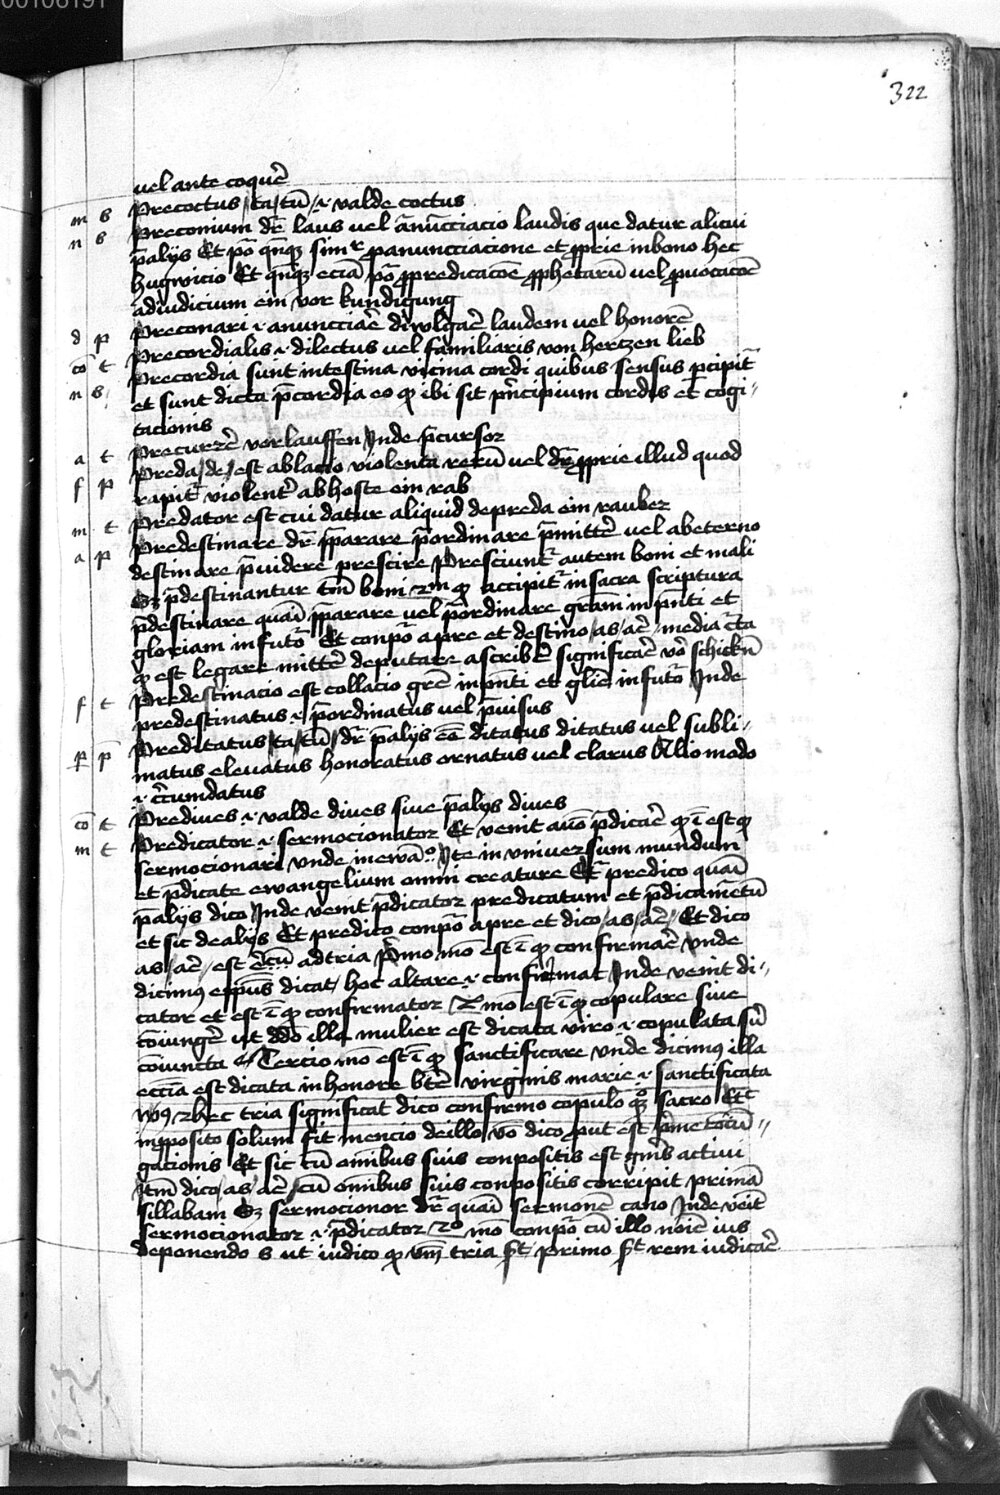 00106191
322
vel ante coquē
m b Precoctus / ta / tū / ꝛ valde coctus
n b Preconium dr̄ laus vel ānūcciacio laudis que datur alicui
p̄ alijs Et pō qn̄qꝫ simr ꝓ anuncciacione et ꝓprie in bono hec
hugwicio Et qn̄qꝫ eciā pō ꝓ predicacōe ꝓphetarū vel ꝓuocacōe
ad iudicium ein vor kundigung
d p Preconari ꝛ anuncciāe diwlgaē laudem vel honorē
cō t Precordialis ꝛ dilectus vel familiaris von hertzen lieb
n b Precordia sunt intestina vicina cordi quibus sensus ꝑcipit̄
et sunt dicta p̄cordia eo ꝙ ibi sit pn̄cipium cordis et cogi〃
tacionis
a t Precurrē vorlauffen Inde p̄cursor
f p Preda / de / est ablacio violenta rerū vel dr̄ ꝓprie illud quod
rapit̄ violent̄ ab hoste ein rab
m t Predator est cui datur aliquid de preda ein rauber
a p Predestinare dr̄ p̄parare p̄ordinare p̄mittē vel ab eterno
destinare p̄uidere prescire Presciunt̄ autem boni et mali
Sꝫ p̄destinantur tm̄ boni ꝙ accipit̄ in sacra scriptura
p̄destinare quā p̄parare vel p̄ordinare grām in pn̄ti et
gloriam in futō Et conpō a pre et destino / as / aē / media cta
ꝙ est legare mittē deputare ascribē significaē vō schickn̄
f t Predestinacio est collacio grē in pn̄ti et glīe in futō Inde
predestinatus ꝛ p̄ordinatus vel p̄uisus
ꝑ p̄ Preditatus / ta / tū / dr̄ p̄ alijs eē ditatus ditatus vel subli〃
matus eleuatus honoratus ornatus vel clarus Alio modo
ꝛ cc̄umdatus
cō t Prediues ꝛ valde diues siue p̄ alijs diues
m t Predicator ꝛ sermocionator Et venit aūo p̄dicaē ꝙ ī est ꝙ
sermocionari vnde in ewāo Ite in vniuersum mundum
et p̄dicate ewangelium omni creature Et̄ predico quā
p̄ alijs dico Inde venit p̄dicator predicatum et p̄dicamētū
et sic de alijs Et predico conpō a pre et dico / as / aē / Et dico
as / aē / est ad tria Pmo mō est ī ꝙ confirmaē vnde
dicimꝯ epūs dicat / hoc altare ꝛ confirmat Inde venit di〃
cator et est ī ꝙ confirmator 2o mō est ī ꝙ copulare siue
cōiungē ut dd̄o illa mulier est dicata viro ꝛ copulata sū
cōiuncta Tercio mō est ī ꝙ sanctificare vnde dicimꝯ illa
ecc̄ia est dicata in honore btē virginis marie ꝛ sanctificata
hec tria significat dico confirmo copulo sacro
in ꝓposito solum fit mencio de illo vō dico put est pme
gacionis Et sic cū omībus suis conpositis est gn̄is actiui
Itm̄ dico / as / aē / cū omībus suis conpositis corripit primā
sillabam Sꝫ sermocionor dr̄ quā sermonē cano Inde venit
sermocionator ꝛ p̄dicator 2o mō conpō cū illo noīe ius
deponendo s ut iudico ꝙ tria primo rem iudicaē